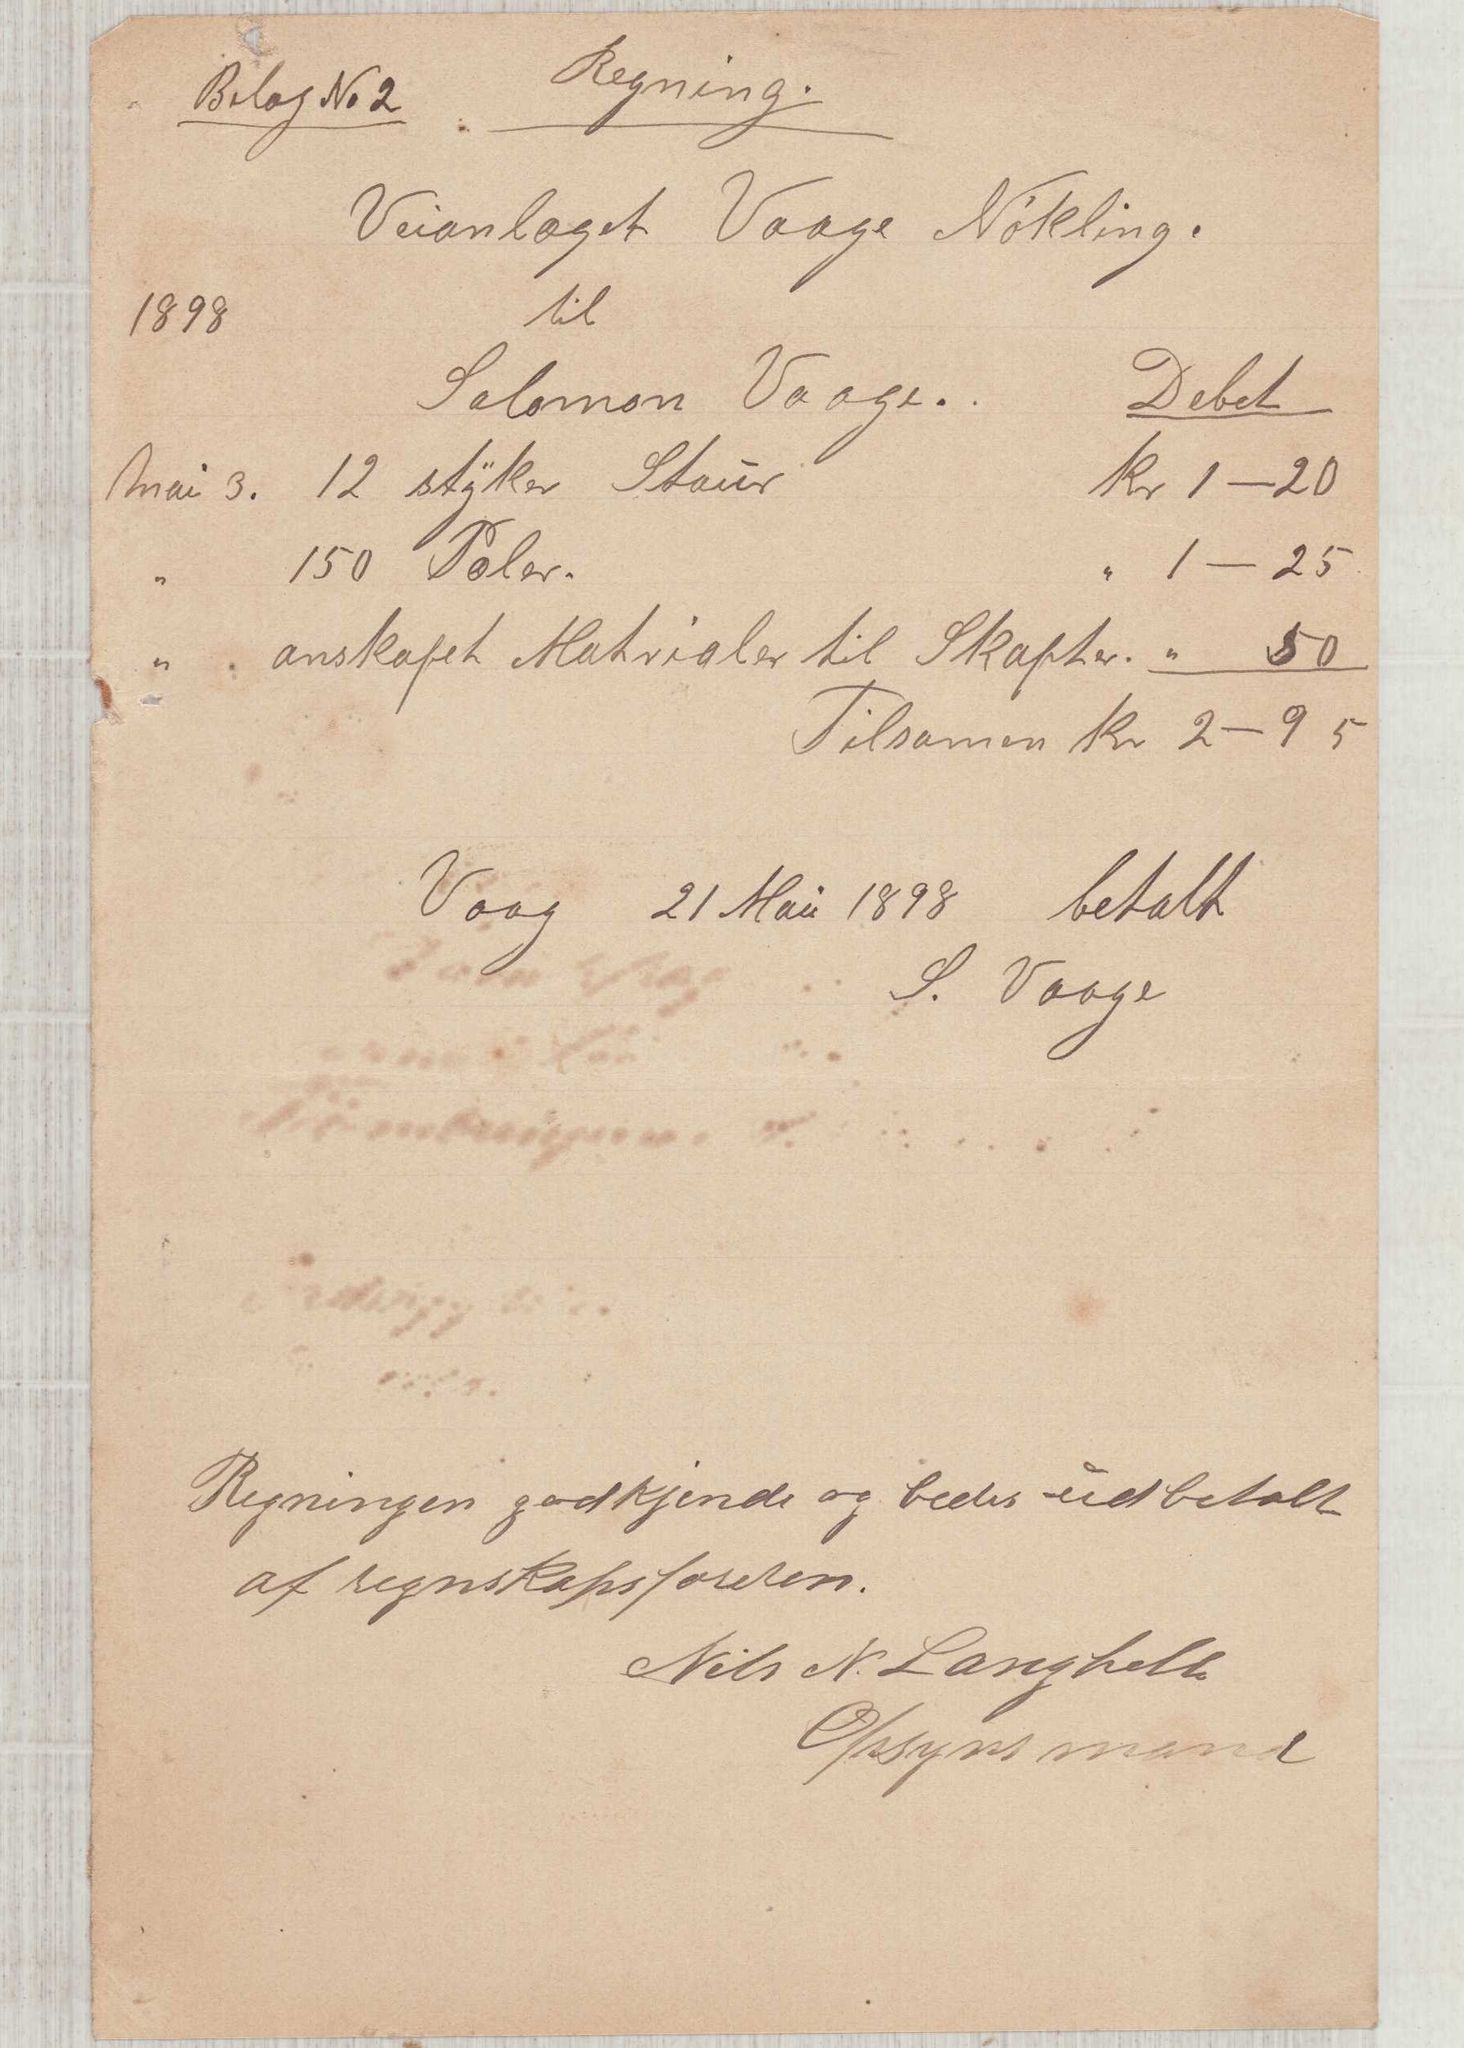 Bilag No 2 Regning.
Veianlæget Vaage Nökling.
1898 til
Salomon Vaage. Debet
Mai 3. 12 stÿker Staur kr 1 — 20
" 150 Pæler. " 1 — 25
" anskafet Matrialer til Skafter. " 50
Tilsamen kr 2 — 95
Vaag 21 Mai 1898 betalt
S. Vaage
Regningen godkjendes og bedes udbetalt
af regnskapsføreren.
Nils N. Langhelle
Opsynsmand